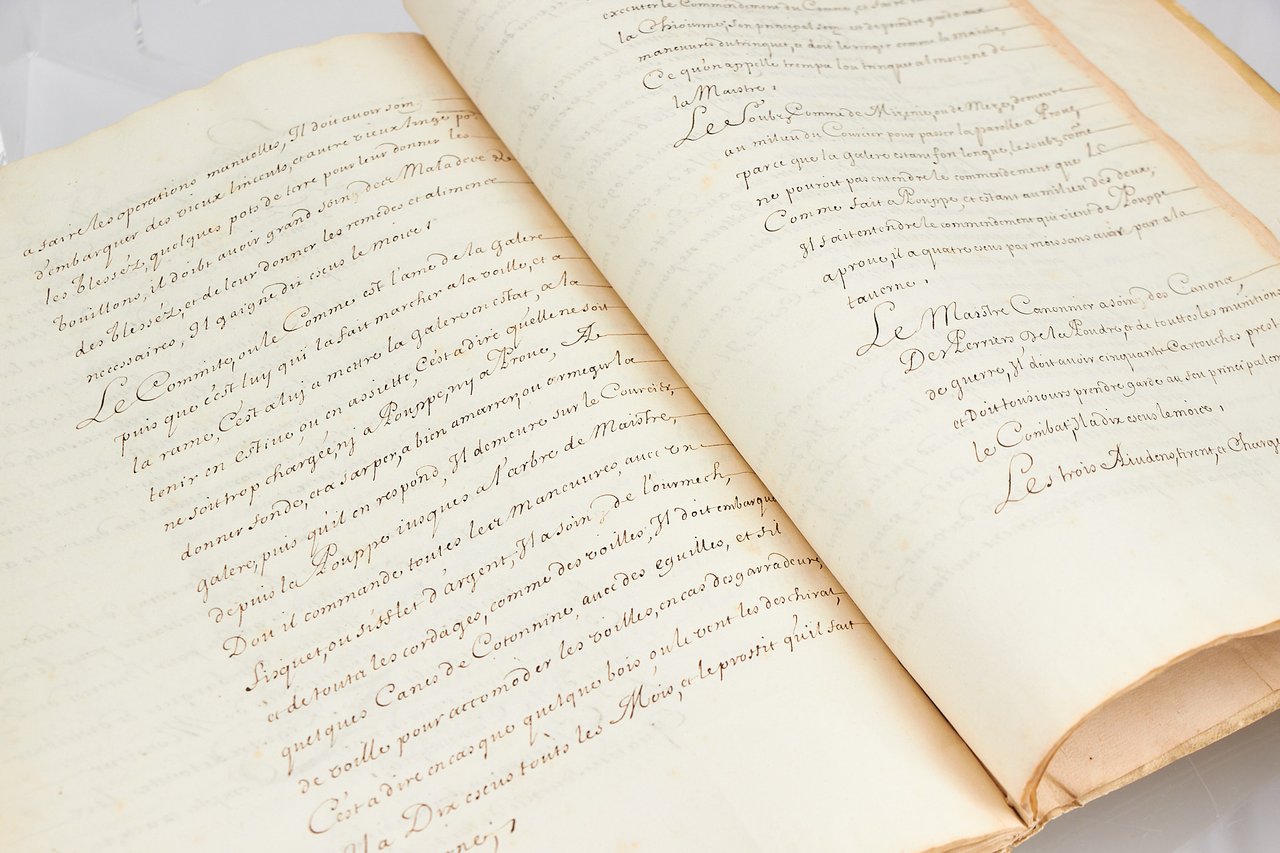 a faire les operations manuelles, Il doit avoir soin
d'embarquer des vieux lincents, et autre vieux linge po.
les blessez, quelques pots de terre pour leur donner les
bouillons, il doibt avoir grand soin des Malades et
des blessez, et de leur donner les remedes et alimens
necessaires, Il gaigne dix escus le mois,
Le Commite, ou le Comme est l'ame de la Galere
puis que c'est luy qui la fait marcher a la voille, et a
la rame, C'est a luy a mettre la galere en estat, a la
tenir en estive, ou, en assiette, C'est a dire quelle ne soit
ne soit trop chargée, ny a Pouppe, ny a Proue, A
donner fonde, et a sarper, a bien amarrer, ou ormeger la
galere, puis qu'il en respond, Il demeure sur le Courcier,
depuis la Pouppe jusques a l'arbre de Maistre,
Dou il commande toutes les Manœuvres, avec un
fisquet, ou sifflet d'argent, Il a soin de l'ourmech,
et de touts les cordages, comme des voilles, Il doit embarque
quelques Canes de Cotonnine, avec des eguilles, et fil
de voille pour accomoder les voilles, en cas des garradeures,
C'est a dire en cas que quelque bois ou le vent les deschirat,
Il a Dix escus touts les Mois, et le proffit qu'il fait
executer le Commendement du Comme, et faire
la Chiourme, son principal soin est de prendre garde aux
manœuvres du trinquet, a doit
Ce qu'on appelle trempa lou trinque al moigne de
la Maistre,
Le Soubz Comme de Mizenie, ou de Mezo, demeure
au milieu du Courcier pour passer la parolle a Proue,
parce que la galere estant fort longue, le soubz come
ne pouroit pas entendre le commendement que Le
Comme fait a Pouppe, et estant au milieu des deux,
Il fait entendre le commendement qui vient de Pouppe
a proue, il a quatre escus par mois sans avoir part a la
taverne,
Le Maistre Canonnier a soin, des Canons
Des Perriers de la Poudre, et de touttes les munitions
de guerre, Il doit avoir cinquante Cartouches
et Doit tousjours prendre garde au feu
le Combat, Il a dix escus le mois,
Les trois Aiudens, tirent, et Charge